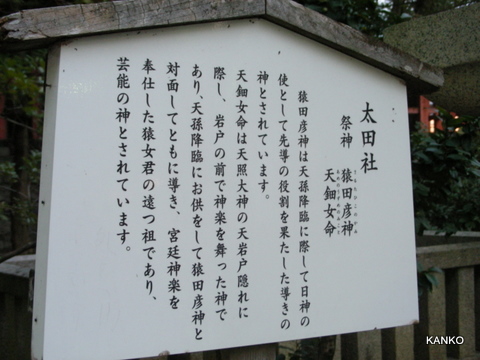 太田社
祭神 猿田彦神
天鈿女命
猿田彦神は天孫降臨に際して日神の
使として先導の役割を果たした導きの
神とされています。
天鈿女命は天照大神の天岩戸隠れに
際し、岩戸の前で神楽を舞った神で
あり、天孫降臨にお供をして猿田彦神と
対面してともに導き、宮廷神楽を
奉仕した猿女君の遠つ祖であり、
芸能の神とされています。
KANKO